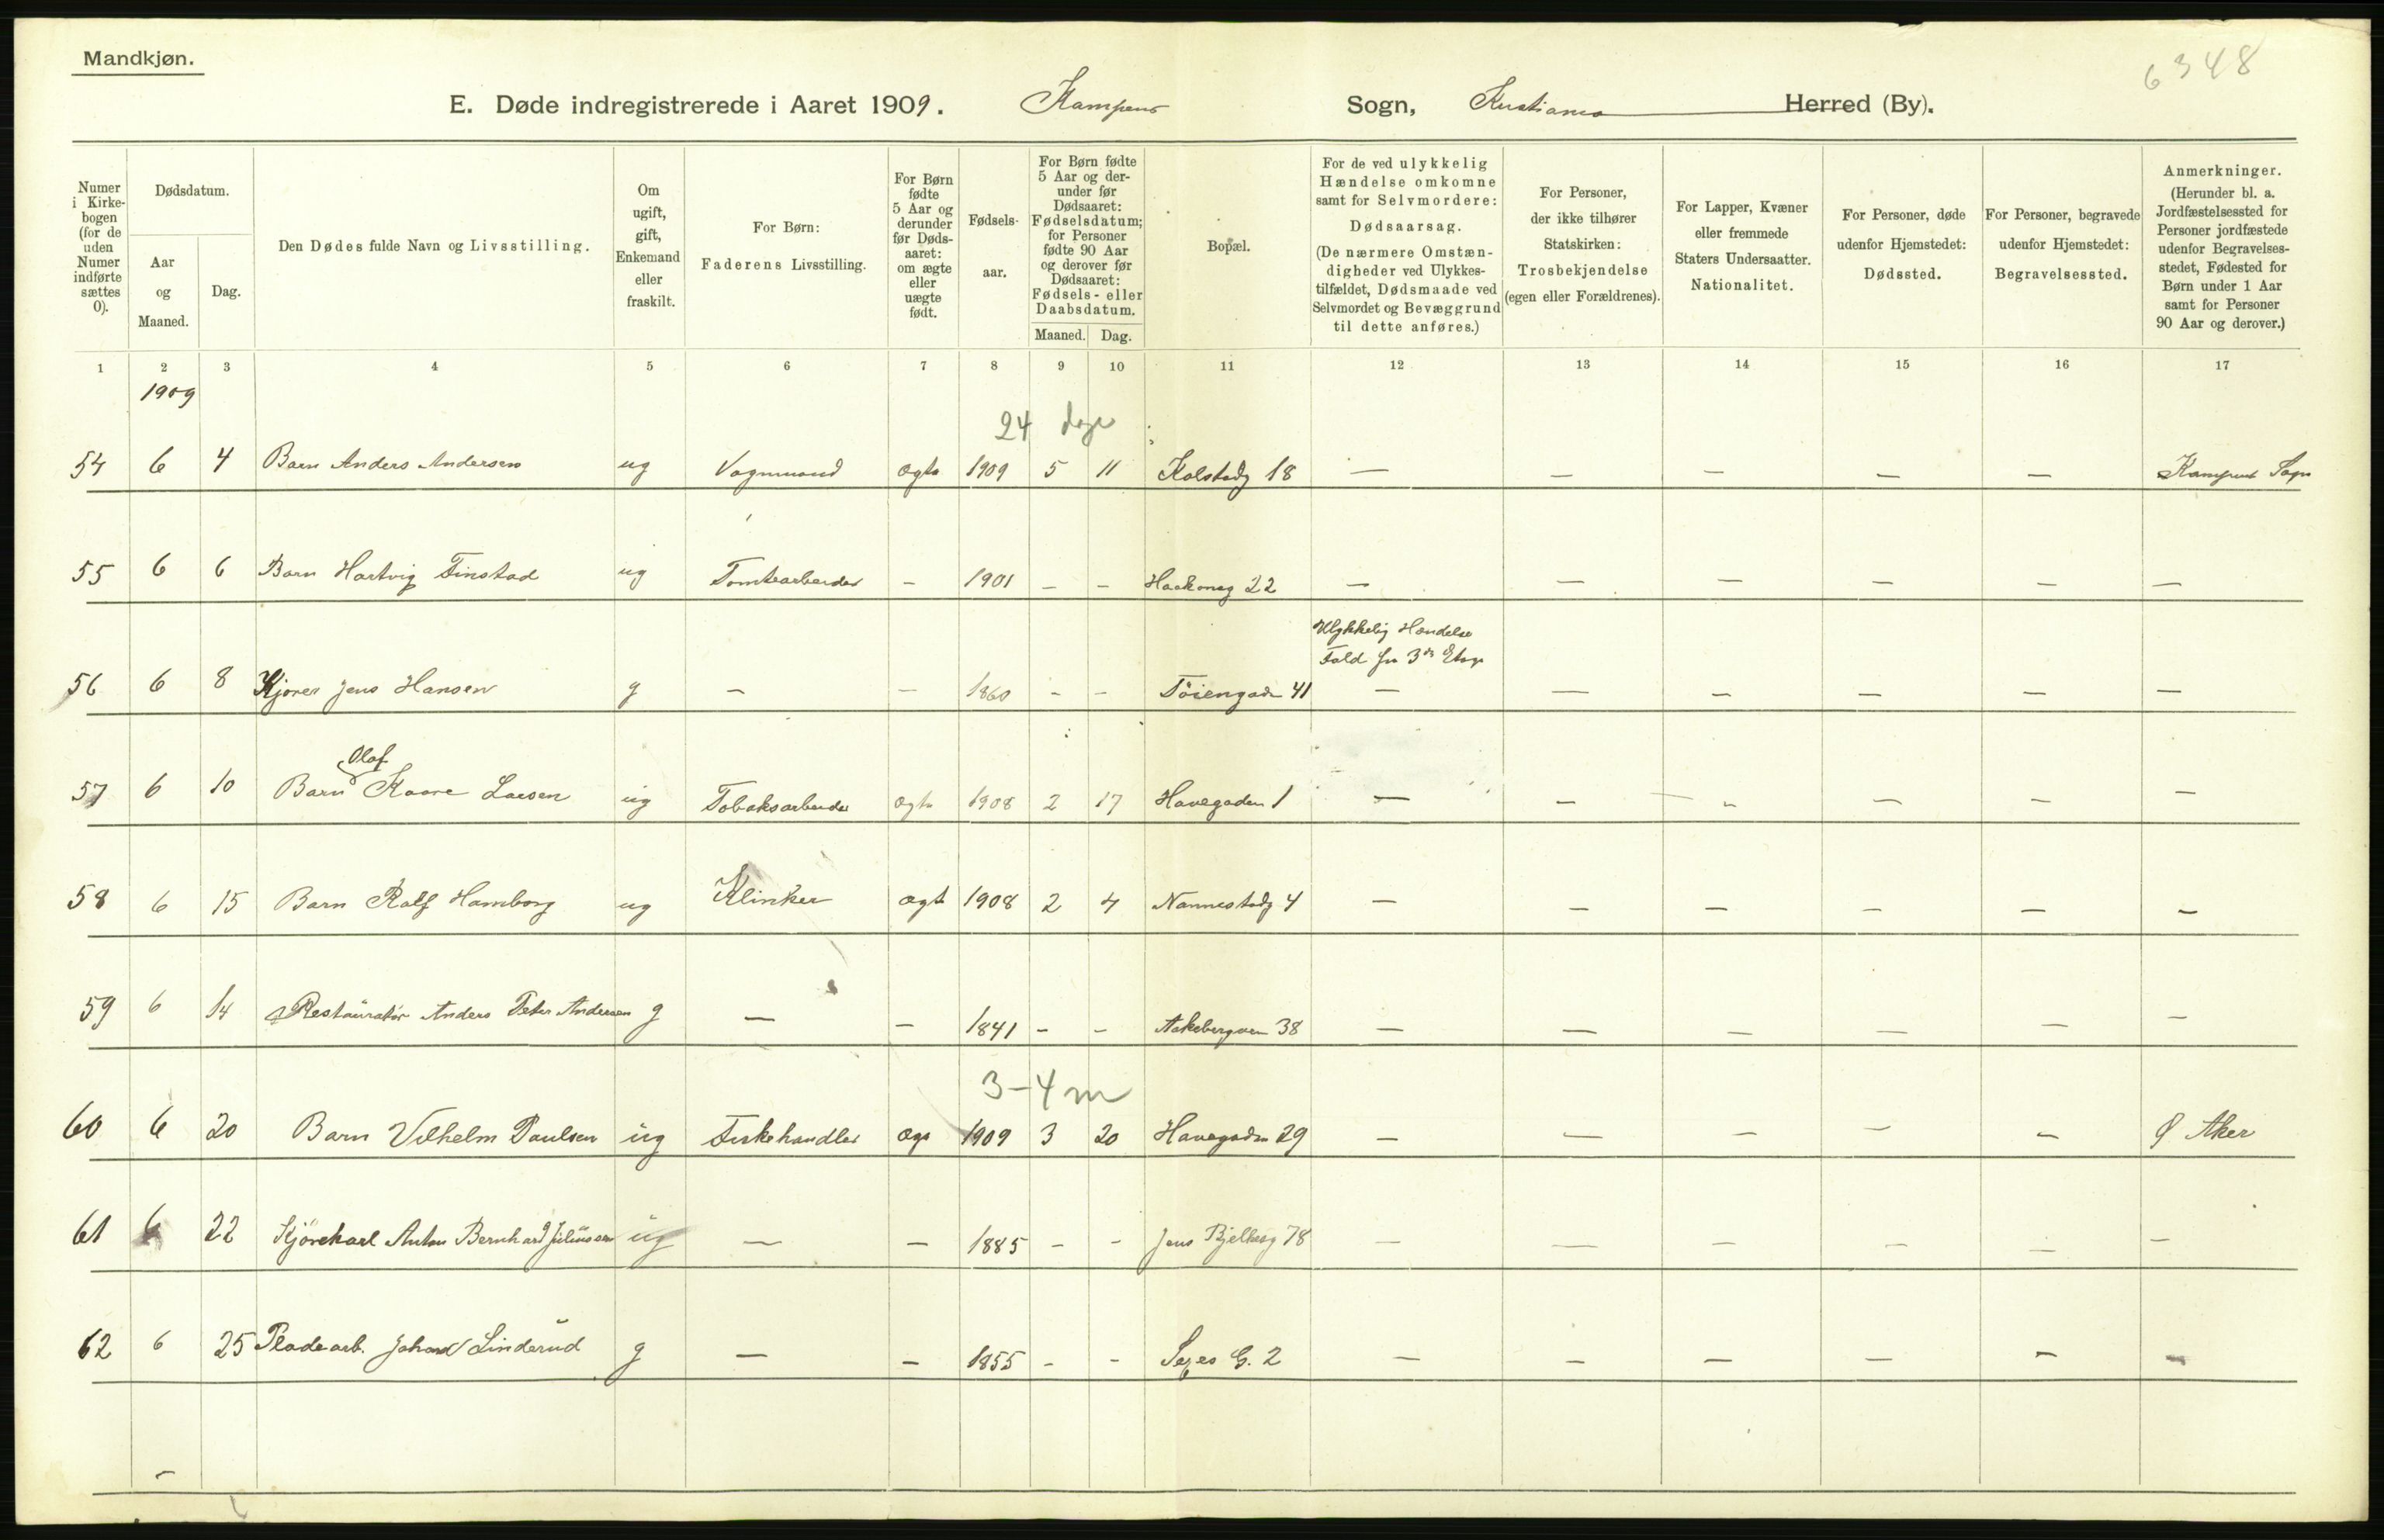 Mandkjøn.
6348
E. Døde indregistrerede i Aaret 1909. Kampens Sogn, Kristiania Herred (By).
Numer i Kirkebogen (for de uden Numer indførte sættes 0).
Dødsdatum.
Aar og Maaned.
Dag.
Den Dødes fulde Navn og Livsstilling.
Om ugift, gift, Enkemand eller fraskilt.
For Børn: Faderens Livsstilling.
For Børn fødte 5 Aar og derunder før Dødsaaret: om ægte eller uægte født.
Fødselsaar.
For Børn fødte 5 Aar og derunder før Dødsaaret: Fødselsdatum; for Personer fødte 90 Aar og derover før Dødsaaret: Fødsels- eller Daabsdatum.
Maaned. Dag.
Bopæl.
For de ved ulykkelig Hændelse omkomne samt for Selvmordere: Dødsaarsag. (De nærmere Omstændigheder ved Ulykkestilfældet, Dødsmaade ved Selvmordet og Bevæggrund til dette anføres.)
For Personer, der ikke tilhører Statskirken: Trosbekjendelse (egen eller Forældrenes).
For Lapper, Kvæner eller fremmede Staters Undersaatter. Nationalitet.
For Personer, døde udenfor Hjemstedet: Dødssted.
For Personer, begravede udenfor Hjemstedet: Begravelsessted.
Anmerkninger. (Herunder bl. a. Jordfæstelsessted for Personer jordfæstede udenfor Begravelsesstedet, Fødested for Børn under 1 Aar samt for Personer 90 Aar og derover.)
1 2 3 4 5 6 7 8 9 10 11 12 13 14 15 16 17
1909
24 dage
54 6 4 Barn Anders Andersen ug Vognmand ægte 1909 5 11 Kolstadg 18 — — — — — Kampens Sogn
55 6 6 Barn Hartvig Finstad ug Tomtearbeider — 1901 — — Haakonsg 22 — — — — — —
Ulykkelig Hændelse
Fald fra 3die Etage
56 6 8 Kjører Jens Hansen g — — 1860 — — Töiengaden 41 — — — — — —
Olaf
57 6 10 Barn Kaare Larsen ug Tobaksarbeider ægte 1908 2 17 Havegaden 1 — — — — — —
58 6 15 Barn Rolf Hamborg ug Klinker ægt 1908 2 4 Nannestadg 4 — — — — — —
59 6 14 Restauratör Anders Peter Andersen g — — 1841 — — Aakebergveien 38 — — — — — —
3-4 m
60 6 20 Barn Vilhelm Paulsen ug Fiskehandler æg 1909 3 20 Havegaden 29 — — — — — Ø Aker
61 6 22 Kjörekarl Anton Bernhard Juliussen ug — — 1885 — — Jens Bjelkesg 78 — — — — — —
62 6 25 Pladearb. Johan Linderud g — — 1855 — — G. 2 — — — — — —